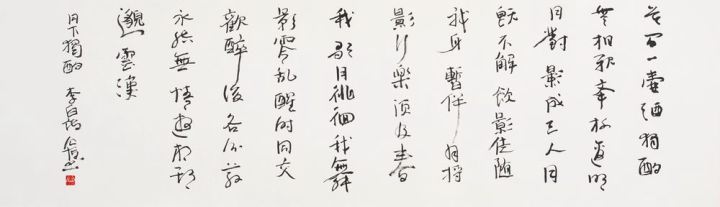 花间一壶酒獨酌
無相親舉杯邀明
月對影成三人月
既不解飲影徒隨
我身暫伴月將
影行樂須及春
我歌月徘徊我舞
影零乱醒时同交
歡醉後各分散
永結無情遊相期
邈雲漢
月下獨酌 李白詩